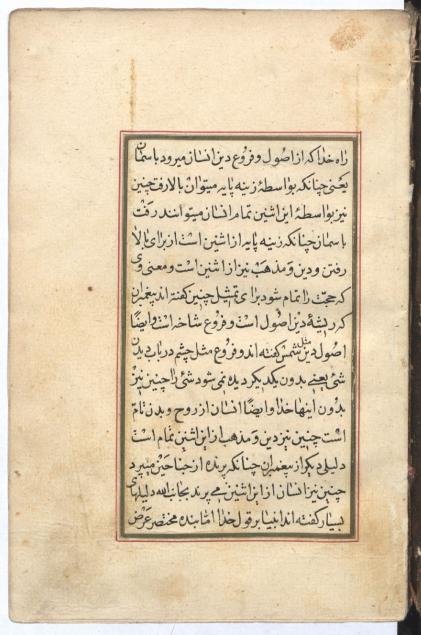 راه خدا که از اصول و فروع دین انسان میرود باسمان
یعنی چنانکه بواسطهٔ زینه پایه میتوان بالا رفت چنین
نیز بواسطهٔ این اشنین تمام انسان میتوانند رفت
باسمان چنانکه زینه پایه از اشنین است از برای بالا
رفتن و دین و مذهب نیز از اشنین است و معنی وی
که حجت را تمام شود برای تمثل چنین گفته اند پیغمبران
که ریشهٔ دین اصول است و فروع شاخه است و ایضا
اصول دین مثل شمس گفته اند و فروع مثل چشم در باب بدن
شئ یعنی بدون یکدیگر دیده نمی شود شئ را چنین نیز
بدون اینها خدا و ایضا انسان از روح و بدن تمام
است چنین نیز دین و مذهب از این اشنین تمام است
دلیلی دیگر از پیغمبران چنانکه پرنده از جناحین میپرد
چنین نیز انسان از این اشنین می پرند بجانب الله دلیلهای
بسیار گفته اند انبیا بر قول خدا اما بنده مختصر عرض